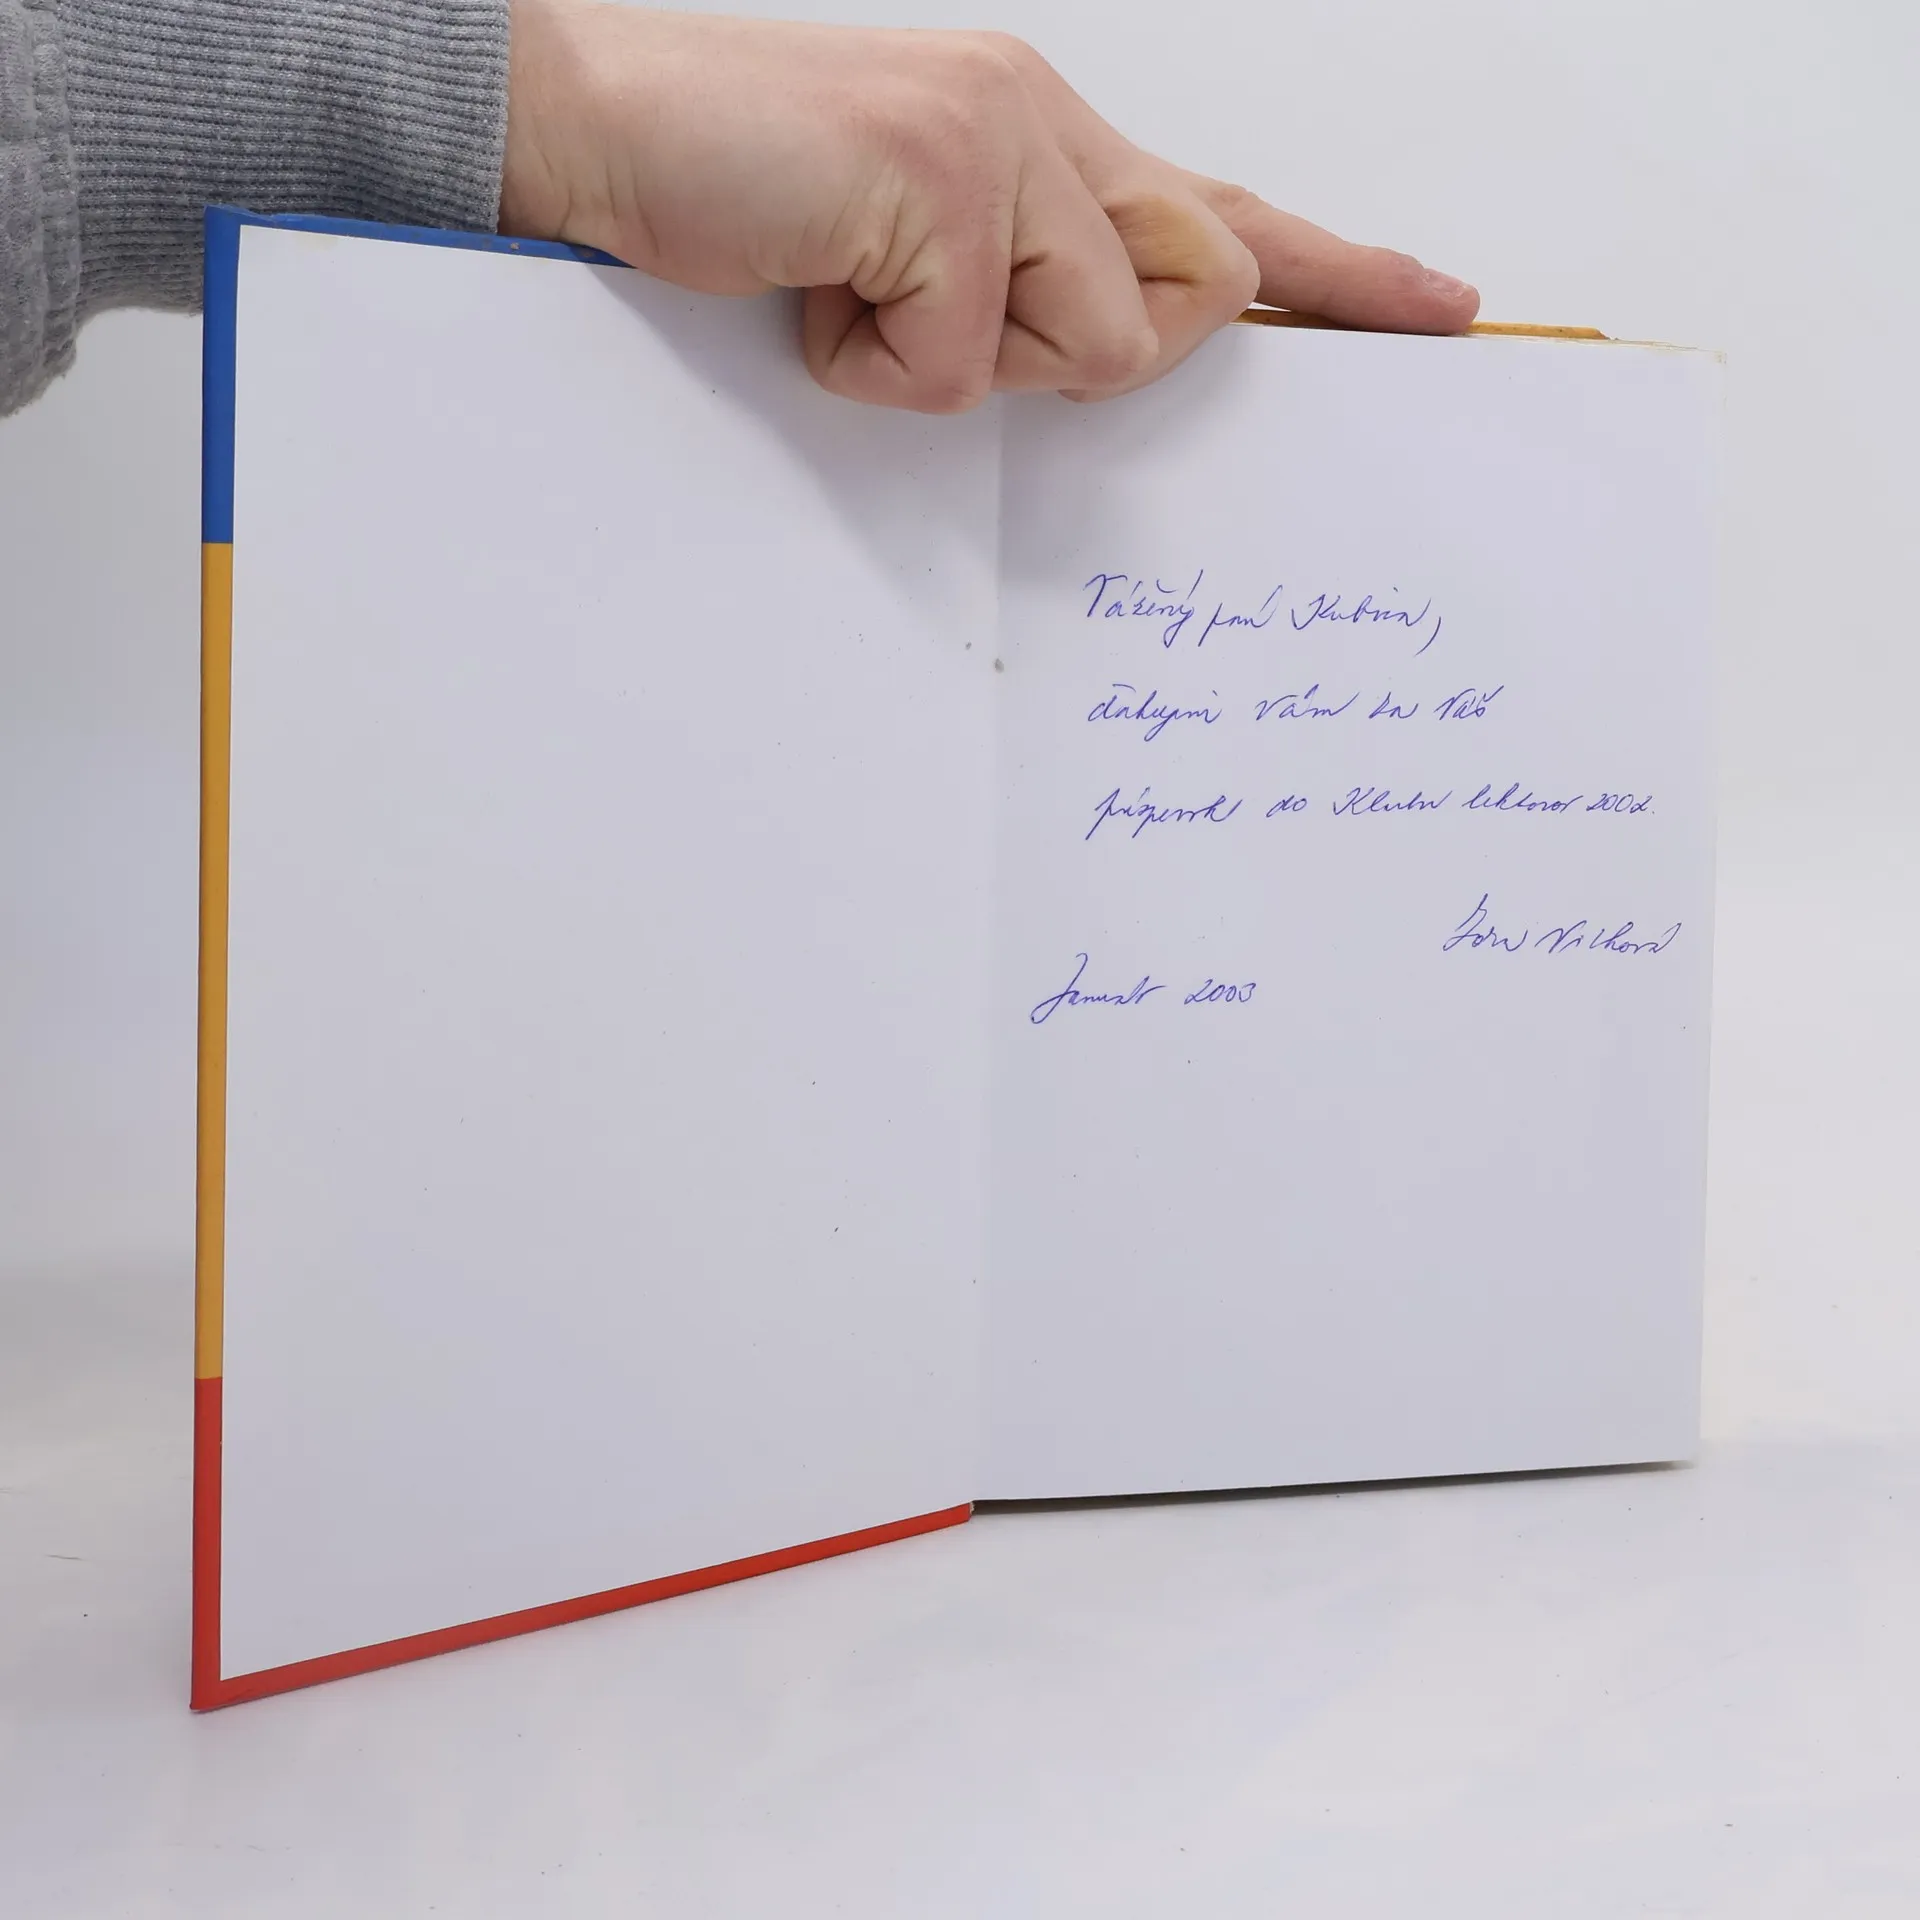 Vážený pán Kubica,
ďakujem Vám za Váš
príspevok do Klubu lektorov 2002.
Vlchová
Január 2003